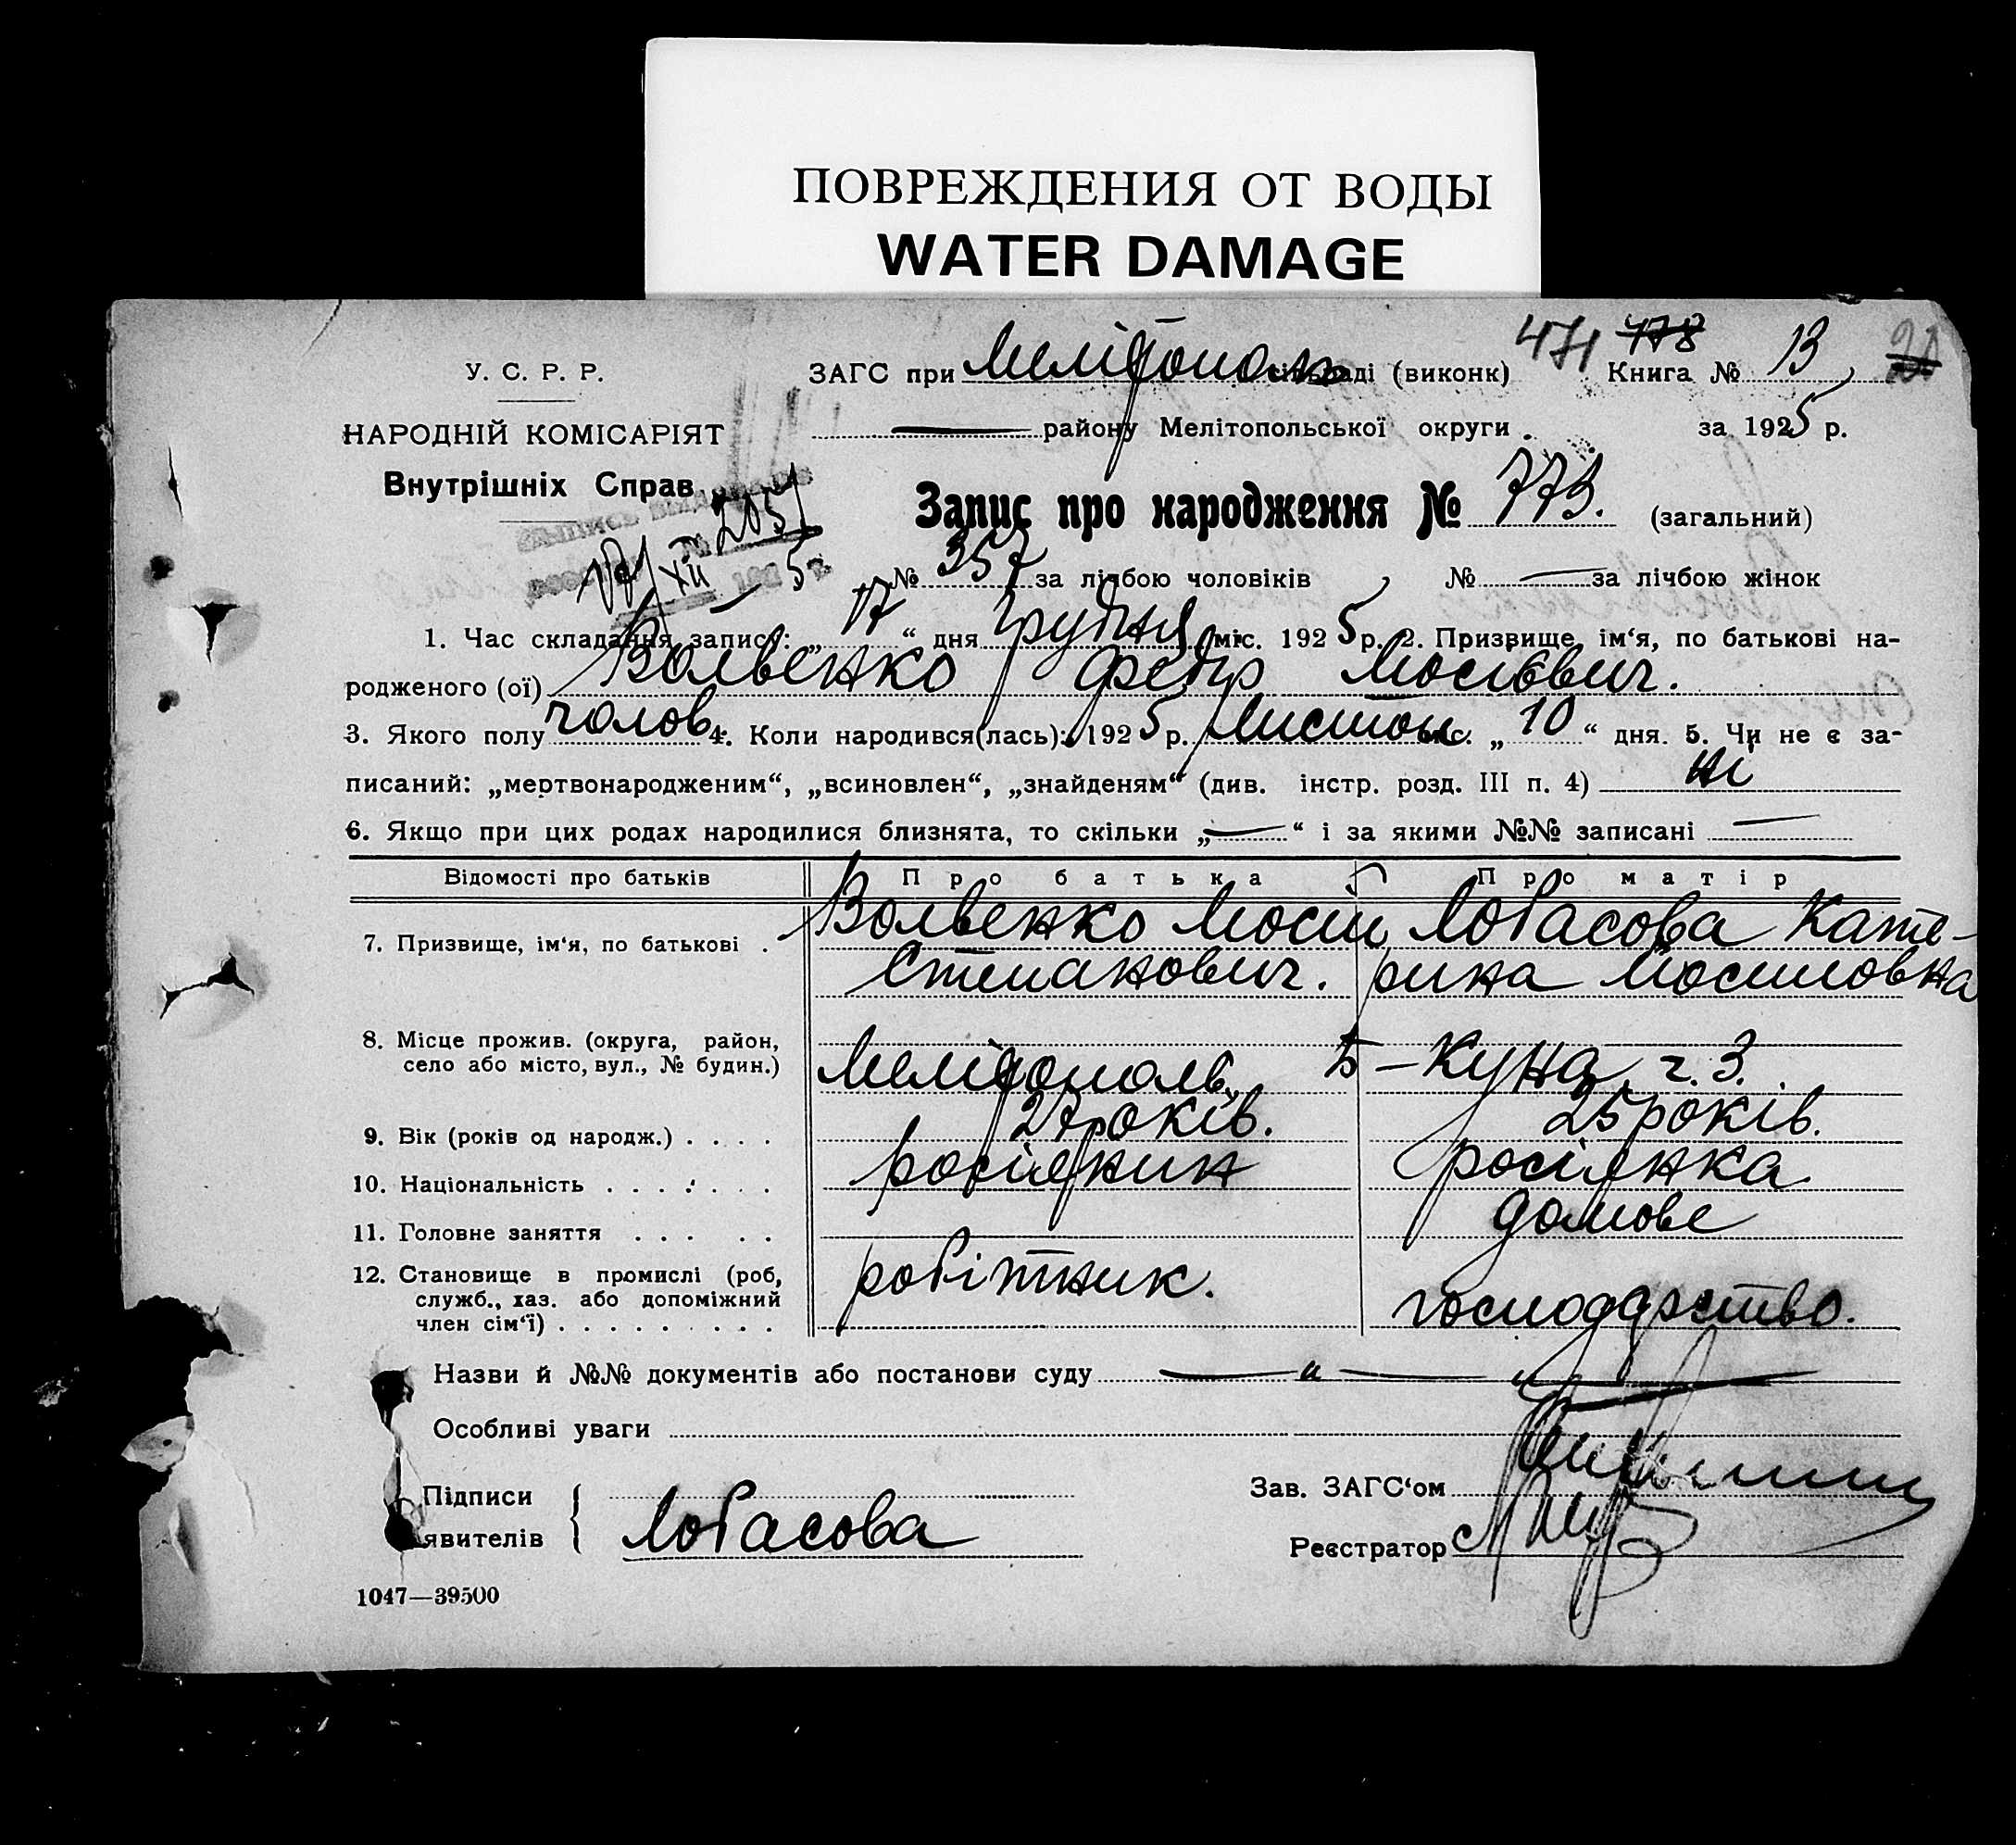 ПОВРЕЖДЕНИЯ ОТ ВОДЫ
WATER DAMAGE
471 478
У. С. Р. Р. ЗАГС при Мелітополь раді (виконк) Книга № 13
НАРОДНІЙ КОМІСАРІЯТ — району Мелітопольської округи за 1925 р.
Внутрішніх Справ
Запис про народження № 773. (загальний)
№ 357 за лічбою чоловіків, № — за лічбою жінок
1. Час складання запису: „17“ дня грудня міс. 1925 р. 2. Призвище, ім‘я, по батькові на-
родженого (ої) Вольвенко Федір Мосієвич.
3. Якого полу чолов. 4. Коли народився(лась): 1925 р. листоп. міс. „10“ дня. 5. Чи не є за-
писаний: „мертвонародженим“, „всиновлен“, „знайденям“ (див. інстр. розд. III п. 4) ні
6. Якщо при цих родах народилися близнята, то скільки „—“ і за якими №№ записані —
Відомості про батьків Про батька Про матір
7. Призвище, ім‘я, по батькові . Вольвенко Мосій Лобасова Кате-
Степанович. рина Йосиповна
8. Місце прожив. (округа, район,
село або місто, вул., № будин.) Мелітополь, Б-Куна, ч. 3.
9. Вік (років од народж.) . . . . 27 років. 25 років.
10. Національність . . . . . . . росіянин росіянка
11. Головне заняття . . . . . домове
12. Становище в промислі (роб, робітник.
служб., хаз. або допоміжний господарство.
член сім‘ї) . . . . . . . . .
Назви й №№ документів або постанови суду — „ —
Особливі уваги
Підписи Зав. ЗАГС‘ом
явителів { Лобасова Реєстратор
1047—39500